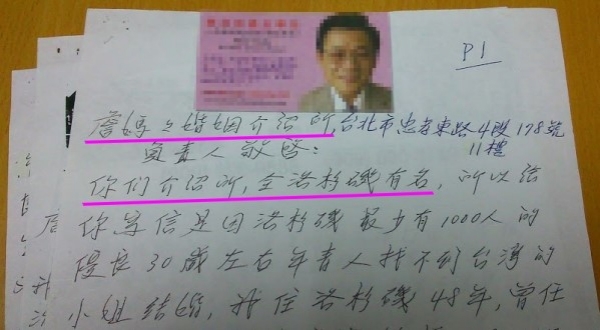 P1
詹媽媽婚姻介紹所,台北市忠孝東路4段178號
11樓
負責人敬啓:
你们介紹所,全洛杉磯有名,所以給
你写信是因洛杉磯最少有1000人的
優良30歲左右年青人找不到台湾的
小姐结婚,我住洛杉磯48年,曾任